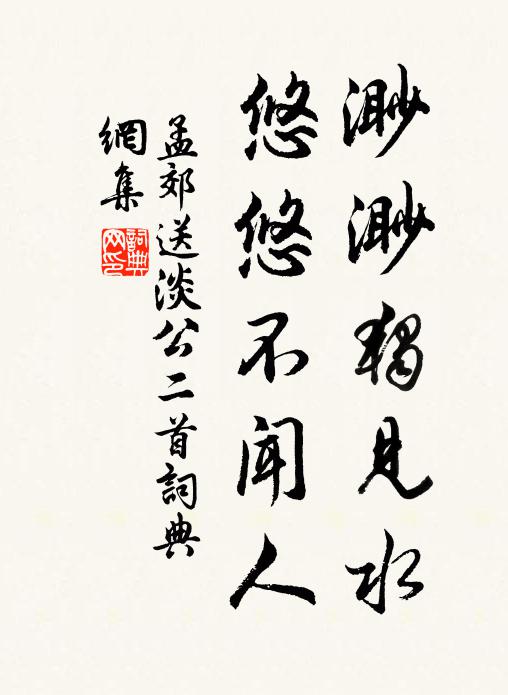 渺渺獨見水
悠悠不聞人
孟郊送淡公二首詞典
網集
詞典
网印